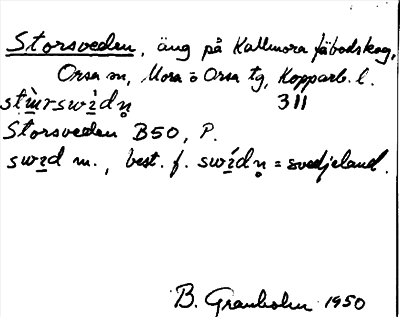 Storsveden, äng på Kallmora fäbodskog,
Orsa sn, Mora o Orsa tg, Kopparb. l.
311
Storsveden B50, P.
m., best. f. = svedjeland.
B. Granholm 1950